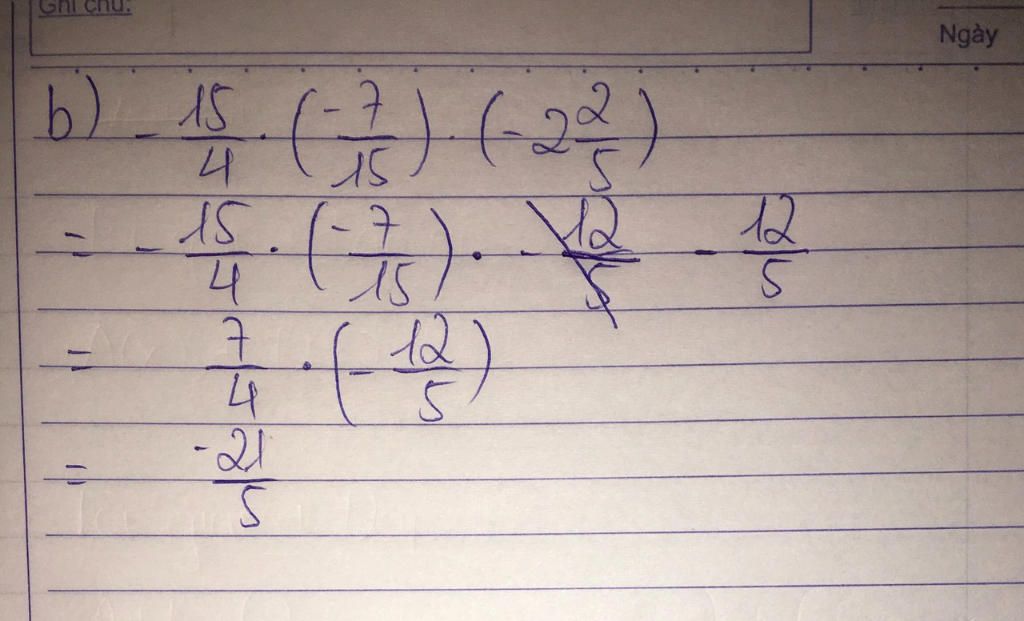 Ghi chú:
Ngày
b) - 15/4 · (-7/15) · (-2 2/5)
= - 15/4 · (-7/15) · - 12/5 - 12/5
= 7/4 · (- 12/5)
= -21/5